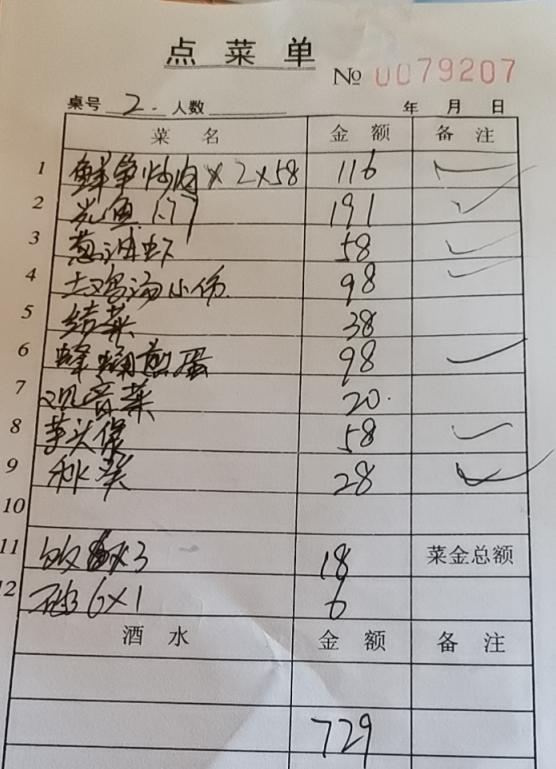 点菜单
№ 0079207
桌号 2. 人数 年 月 日
菜名 金额 备注
1 鲜笋炒肉×2×58 116
2 鱼 1.77 191
3 葱油虾 58
4 土鸡汤小份 98
5 菜 38
6 蜂蛹煎蛋 98
7 观音菜 20.
8 芋头煲 58
9 秋葵 28
10
11 ×3 18 菜金总额
12 6×1 6
酒水 金额 备注
729